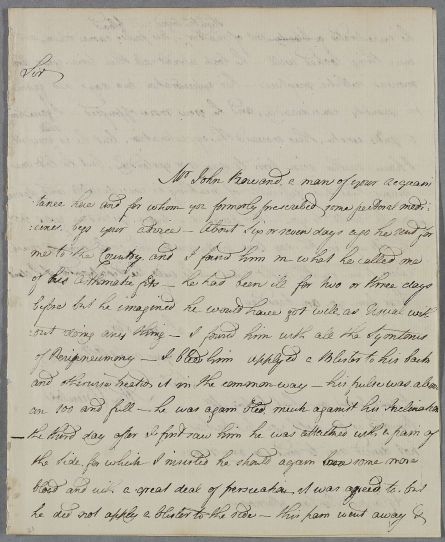 Sir
Mr. John Rowand, a man of your acquain
tance here and for whom you formerly prescribed some pectoral medi:
:cines, begs your advice – About six or seven days ago he sent for
me to the Country and I found him in what he called one
of his asthmatic fits – he had been ill for two or three days
before but he imagined he would have got well as usual with
out doing any thing – I found him with all the symtoms
of Peripneumony – I bled him applyed a Blister to his back
and otherwise treated it in the common way – his pulse was above
an 100 and full – he was again bled, much against his Inclination
the third day after I first saw him he was attacked with a pain of
the side, for which I insisted he should again some more
blood and with a great deal of persuation it was agreed to, but
he did not apply a blister to the side – this pain went away &